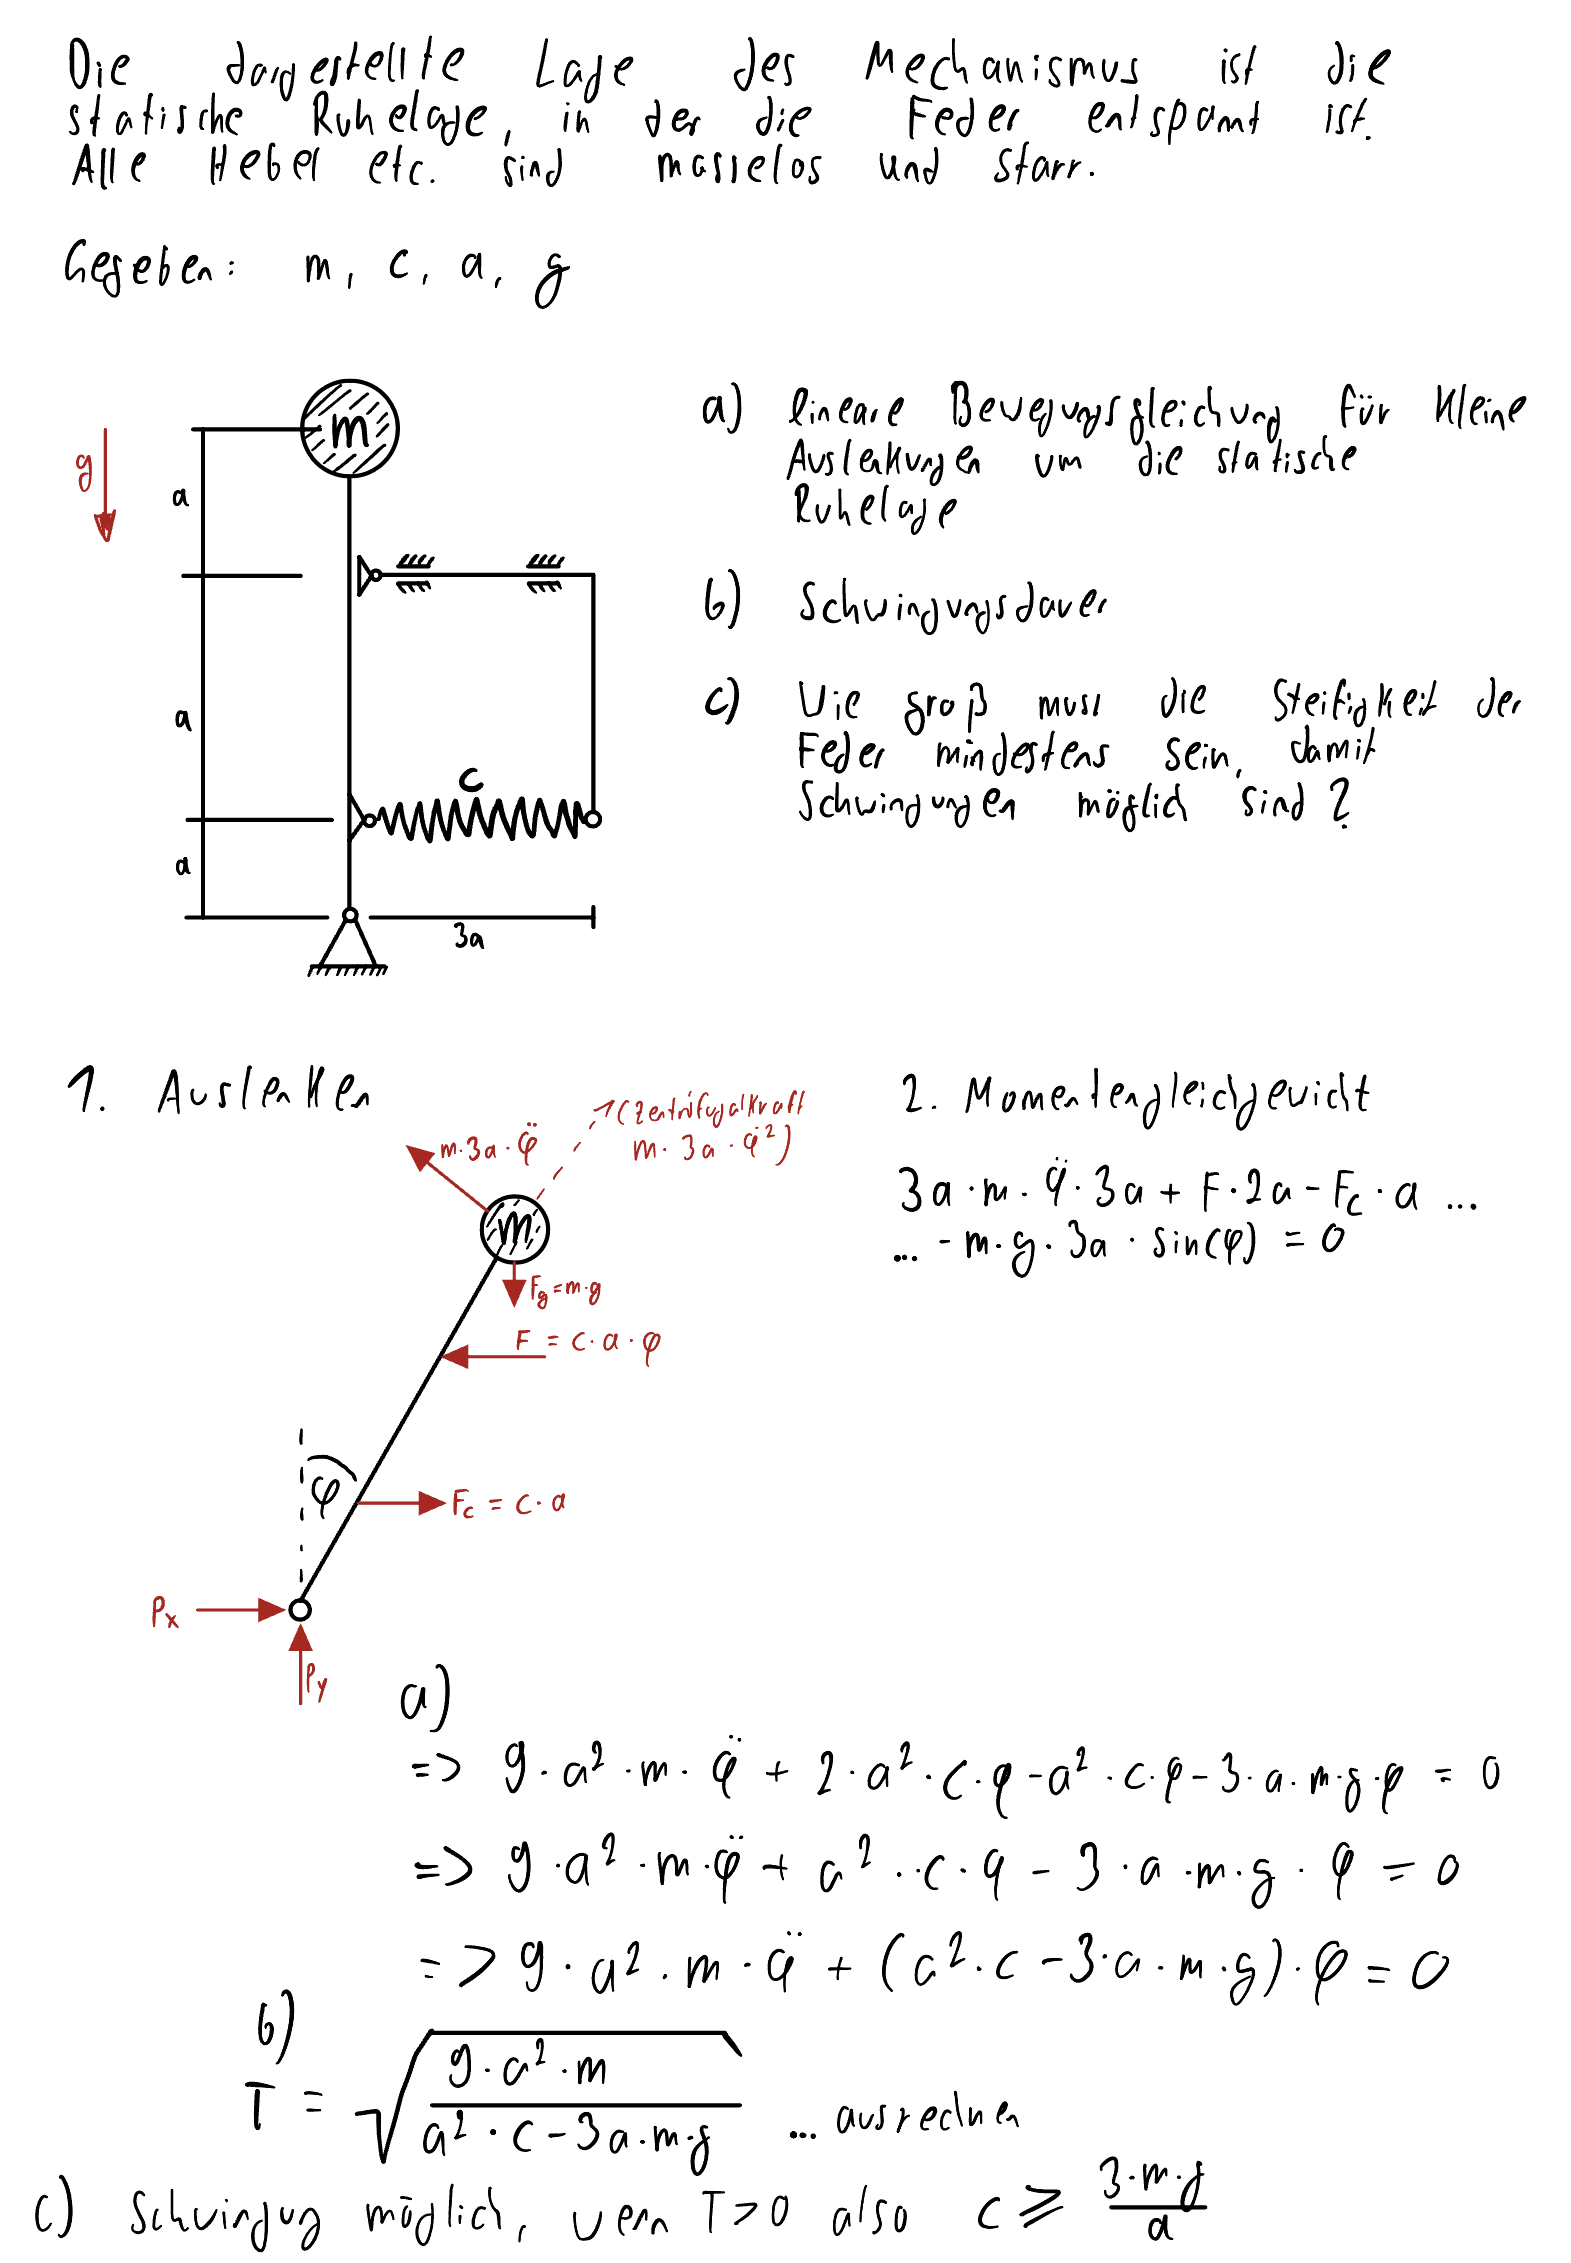 Die dargestellte Lage des Mechanismus ist die
statische Ruhelage, in der die Feder entspannt ist.
Alle Hebel etc. sind masselos und starr.
Gegeben: m, c, a, g
g
a
m
a
c
a
3a
a) lineare Bewegungsgleichung für kleine
Auslenkungen um die statische
Ruhelage
b) Schwingungsdauer
c) Wie groß muss die Steifigkeit der
Feder mindestens sein, damit
Schwingungen möglich sind?
1. Auslenken
m·3a·φ̈
(Zentrifugalkraft
m·3a·φ̇²)
m
Fg=m·g
F = c·a·φ
φ
Fc = c·a
Px
Py
2. Momentengleichgewicht
3a·m·φ̈·3a + F·2a - Fc·a ...
... - m·g·3a·sin(φ) = 0
a)
=> 9·a²·m·φ̈ + 2·a²·c·φ - a²·c·φ - 3·a·m·g·φ = 0
=> 9·a²·m·φ̈ + a²··c·φ - 3·a·m·g·φ = 0
=> 9·a²·m·φ̈ + (a²·c - 3·a·m·g)·φ = 0
b)
T = √(9·a²·m / a²·c - 3a·m·g) ... ausrechnen
c) Schwingung möglich, wenn T>0 also c ≥ 3·m·g / a